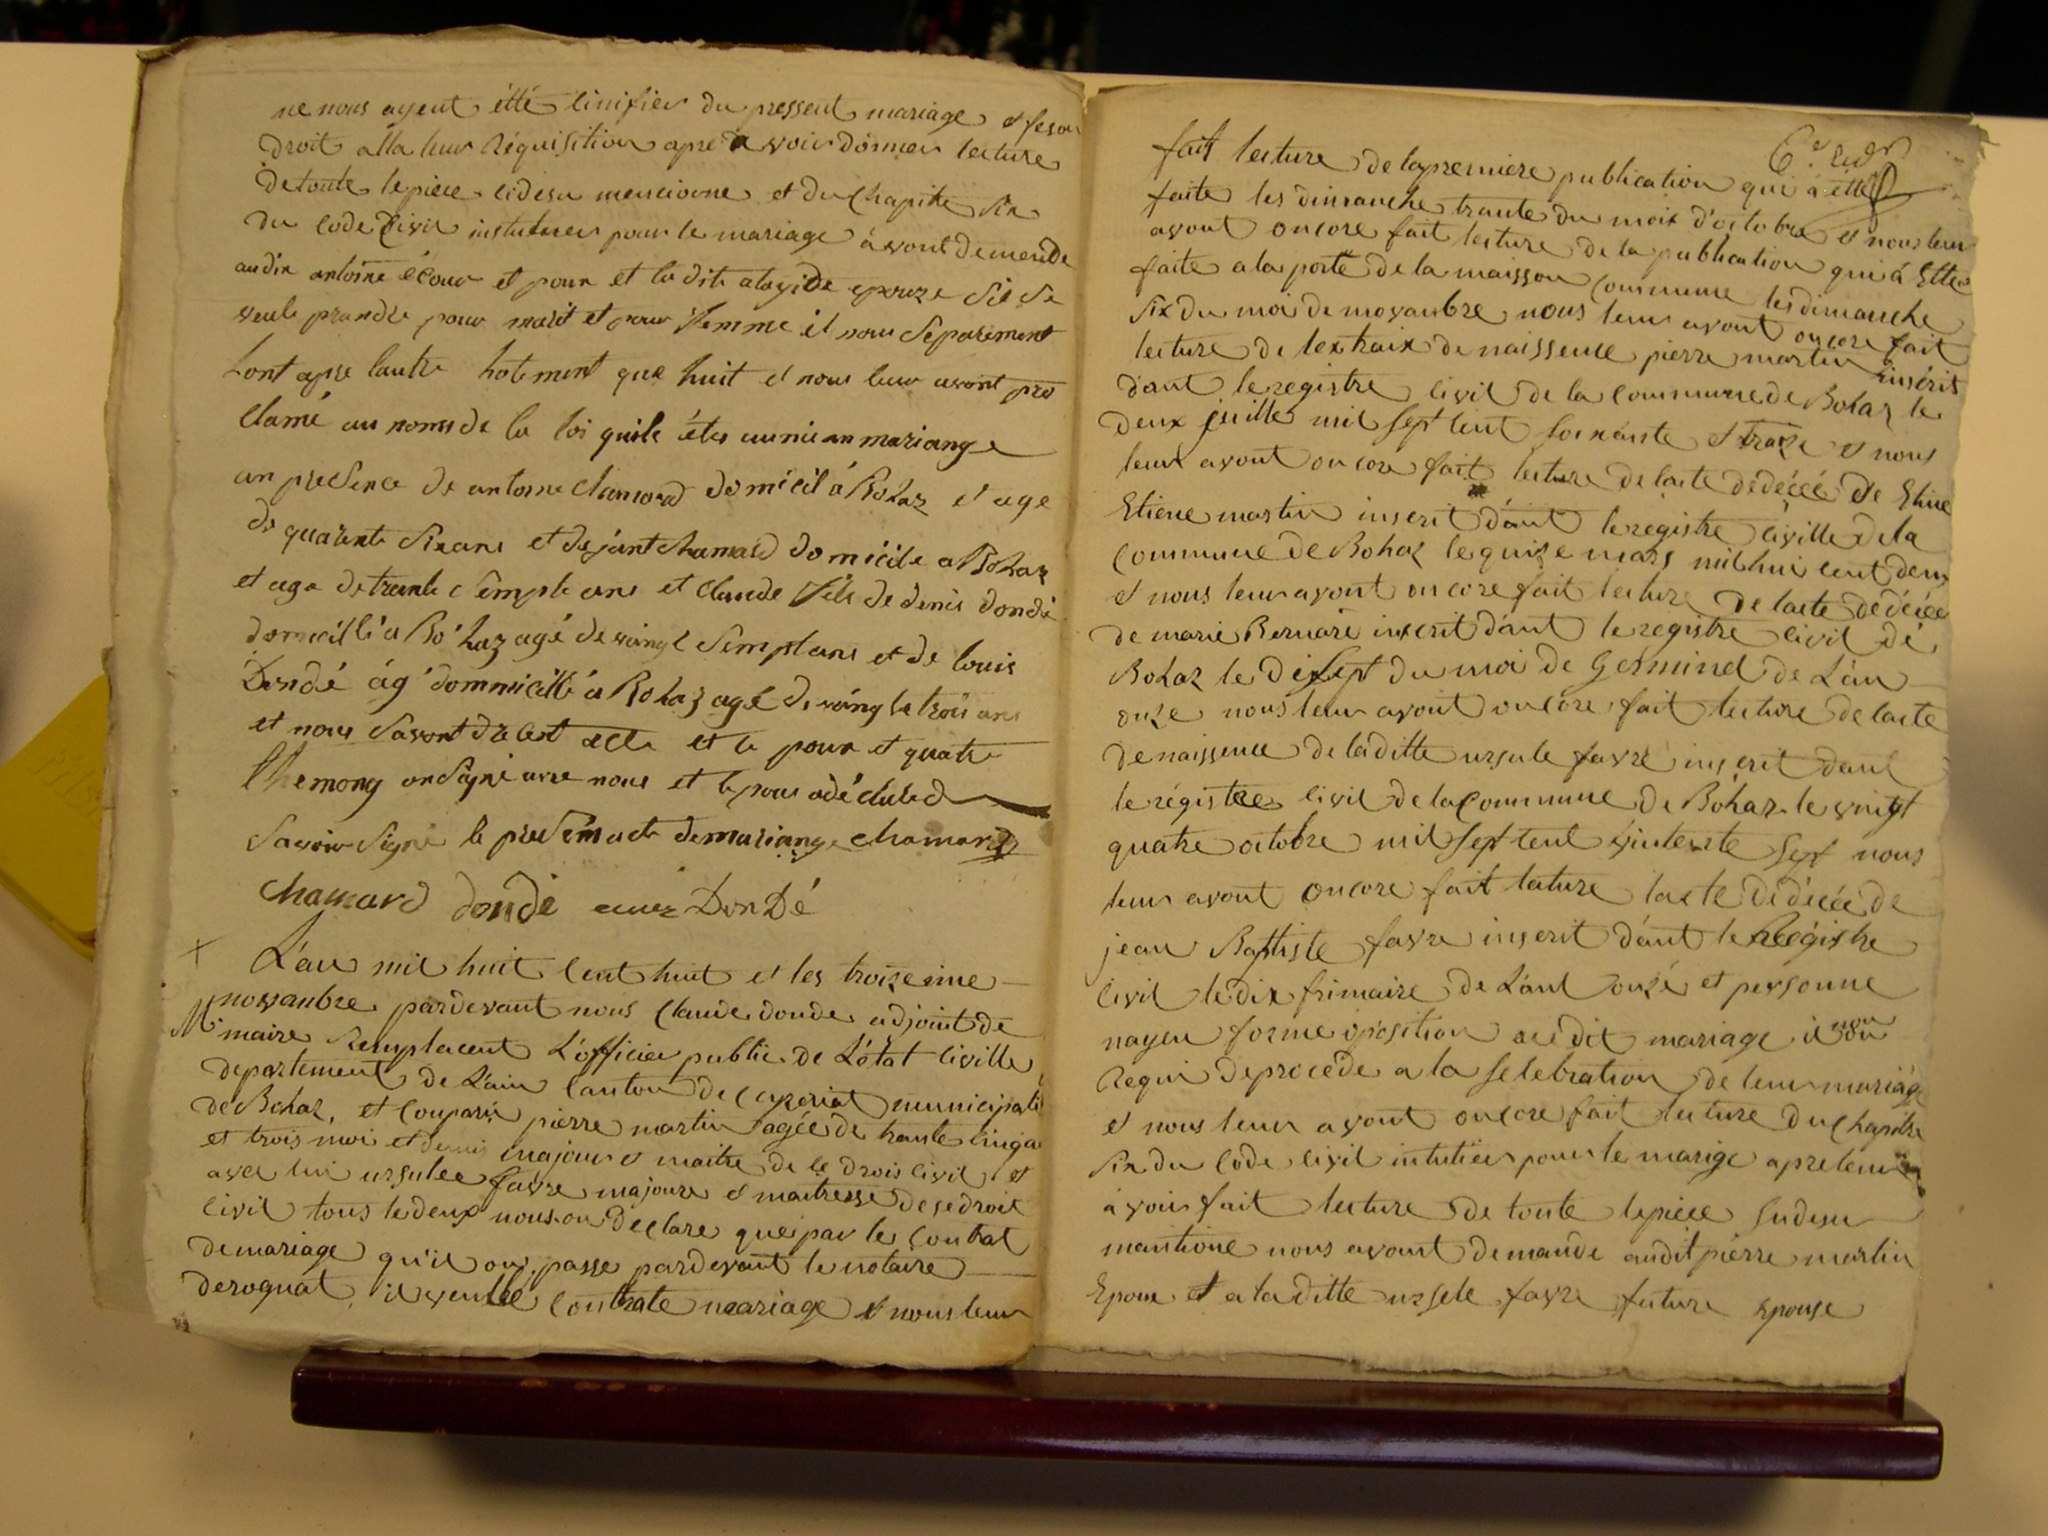 ne nous ayent étté sinifier du pressent mariage et feson
droit álla leur Réquisition apre avoir donner lecture
de toute le piece cidesu mencionne et du Chapitre six
du Code Civil pour le mariage avont demende
audix antoine écour et pour et la dite épouze sil se
veule prandre pour marit et pour femme il nous séparément
hont apre lautre hotement que huit et nous leur avont pro
clamé au noms de la loi quils étes unie an mariange
an presence de antoine chamard domicil á Bohaz et age
de quarente sixans et chamard domicile a Bohaz
et age detrante sempte ans et claude fils de denis dondé
domicillié a Bohaz agé de vaingt semptans et de louis
Dondé ág' dommicillié a Bohaz agé de vaing te trois ans
et nous savont drésent acte et le pour et quatre
themong on signé avec nous et
Savoir signé le present acte de mariange chamard
chamard dondé DonDé
L'au mil huit cent huit et les troizeime
novanbre pardevant nous Claude donde adjoint de
M. maire Remplacent L'officier public de L'état civille
departement de L'ain Canton de Cyzeriat municipalit
de Bohaz, et Conparu pierre martin agée de trante cinq a
et trois moi et demis majour et maitre de ce drois civil et
avec lui ursulee favre majoure et maitresse de se droit
civil tous le deux nous on declare que par le Contrat
de mariage qu'il on passe pardevant le notaire
deroguat il veulle Contrate mariage et nous leur
fait lecture de la premiere publication qui á étté
faite les dimanche trante du moix d'octobre et nous leur
avont oncore fait lecture de la publication qui á Etté
faite a la porte de la maisson Commune les dimanche
six du moi de novanbre nous leur avont oncore fait
lecture de lextraix de naissence pierre martin insérit
dant le registre civil de la Commune de Bohaz le
deux juille mil sept cent soixante et traze et nous
leur avont oncore fait lecture de lacte dedécée de Etine
Etiene martin inserit dant le registre civille de la
Commune de Bohaz le quize mars mil hui cent deux
et nous leur avont oncore fait lecture de lacte dédécée
de marie Bernare inserit dant le registre civil dé
Bohaz le dixsept du moi de Germinel de L'án
onze nous leur avont oncore fait lecture de lacte
de naissence de laditte ursule favre inserit dant
le régistre civil de la Commune de Bohaz le vingt
quatre octobre mil sept cent sept nous
leur avont oncore fait lature lacte dédécée de
jean Baptiste favre inserit dant le Régistre
civil le dix frimaire de L'ánt onze et personne
nayen forme oposition audit mariage il nou on
Requi de procede a la selebration de leur mariage
et nous leur avont oncore fait lecture du Chapitre
six du Code civil intutiler pour le marige apre leur
avoir fait lecture de toute lepiece sudesu
mantione nous avont demande audit pierre martin
Epoux et a la ditte ursele favre future Epouse